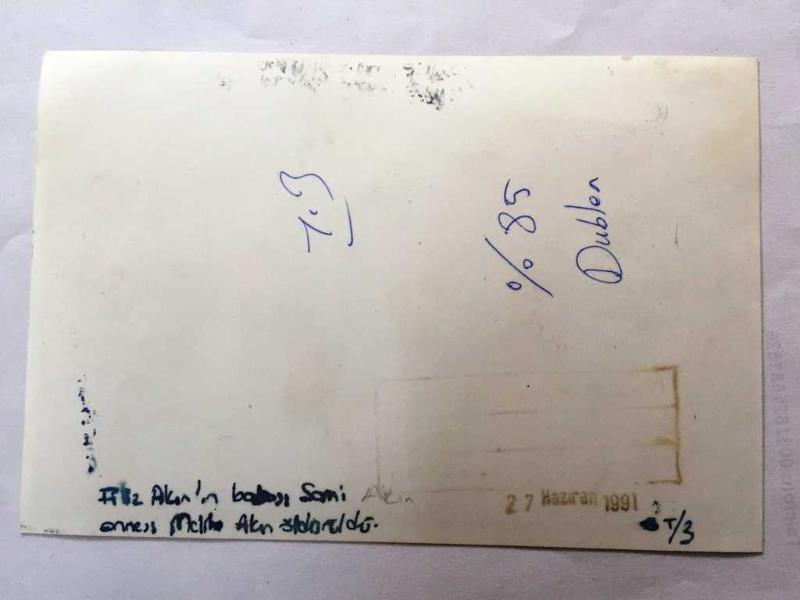 7.3
% 85
Dublen
Filiz Akın'ın babası Sami Akın
annesi Meliha Akın öldürüldü.
27 Haziran 1991
T/3